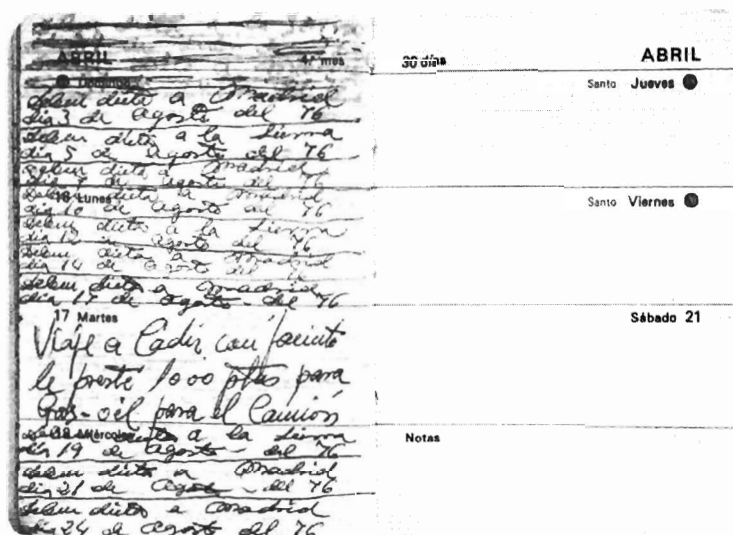 ABRIL 4.º mes
Domingo
dieta a Madrid
dia 3 de Agosto del 76
dieta a la Sierra
dia 5 de Agosto del 76
dieta a Madrid
de Agosto del 76
16 Lunes
a Madrid
dia 10 de agosto del 76
dieta a la Sierra
dia 12 de Agosto del 76
dieta a Madrid
dia 14 de Agosto del
dieta a Madrid
dia 17 de Agosto del 76
17 Martes
Viaje a Cadiz con
le presté 1000 ptas para
Gas-oil para el Camión
18 Miércoles
a la Sierra
dia 19 de Agosto del 76
dieta a Madrid
dia 21 de Agosto del 76
dieta a Madrid
dia 24 de Agosto del 76
30 días ABRIL
Santo Jueves
Santo Viernes
Sábado 21
Notas